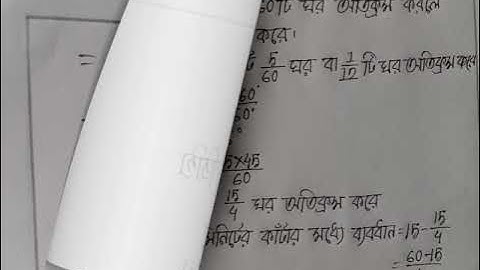 60টি ঘর অতিক্রম করলে
করে।
= টি 5/60 ঘর বা 1/12 টি ঘর অতিক্রম করে
60°
60°
5×45/60
15/4 ঘর অতিক্রম করে
মিনিটের কাঁটার মধ্যে ব্যবধান = 15 - 15/4
= 60-15